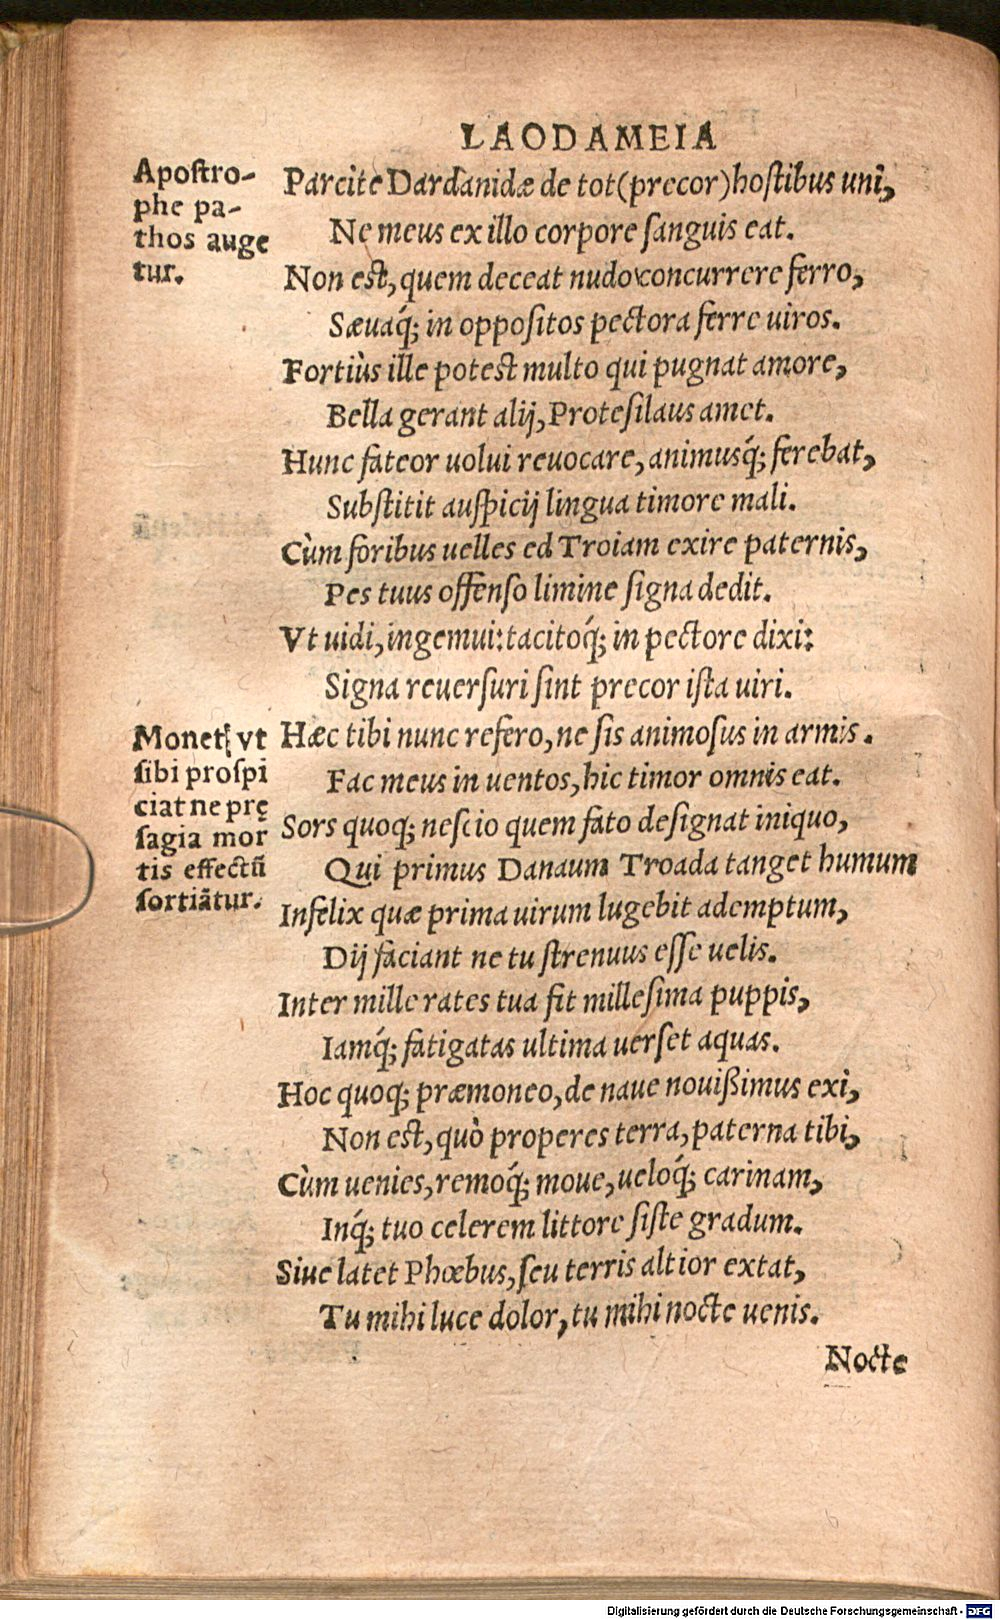 LAODAMEIA
Apostro-
phe pa-
thos auge
tur.
Parcite Dardanidæ de tot (precor) hostibus uni,
Ne meus ex illo corpore sanguis eat.
Non est, quem deceat nudo concurrere ferro,
Sæuaq́; in oppositos pectora ferre uiros.
Fortiùs ille potest multo qui pugnat amore,
Bella gerant alij, Protesilaus amet.
Hunc fateor uolui reuocare, animusq́; ferebat,
Substitit auspicij lingua timore mali.
Cùm foribus uelles ed Troiam exire paternis,
Pes tuus offenso limine signa dedit.
Vt uidi, ingemui: tacitoq́; in pectore dixi:
Signa reuersuri sint precor ista uiri.
Monetq́ vt
sibi prospi
ciat ne prę
sagia mor
tis effectũ
sortiãtur.
Hæc tibi nunc refero, ne sis animosus in armis.
Fac meus in uentos, hic timor omnis eat.
Sors quoq; nescio quem fato designat iniquo,
Qui primus Danaum Troada tanget humum
Infelix quæ prima uirum lugebit ademptum,
Dij faciant ne tu strenuus esse uelis.
Inter mille rates tua fit millesima puppis,
Iamq́; fatigatas ultima uerset aquas.
Hoc quoq; præmoneo, de naue nouißimus exi,
Non est, quò properes terra, paterna tibi,
Cùm uenies, remoq́; moue, ueloq́; carinam,
Inq́; tuo celerem littore siste gradum.
Siue latet Phœbus, seu terris altior extat,
Tu mihi luce dolor, tu mihi nocte uenis.
Nocte
Digitalisierung gefördert durch die Deutsche Forschungsgemeinschaft - DFG